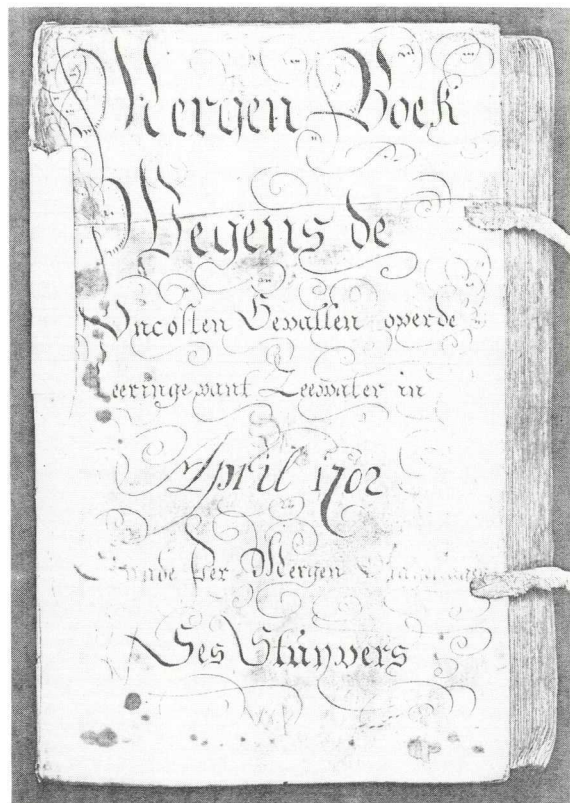 Mergen Boek
Wegens de
Vncosten Gevallen overde
Keeringe vant Zeewater in
April 1702
per Mergen
Ses Stuyvers